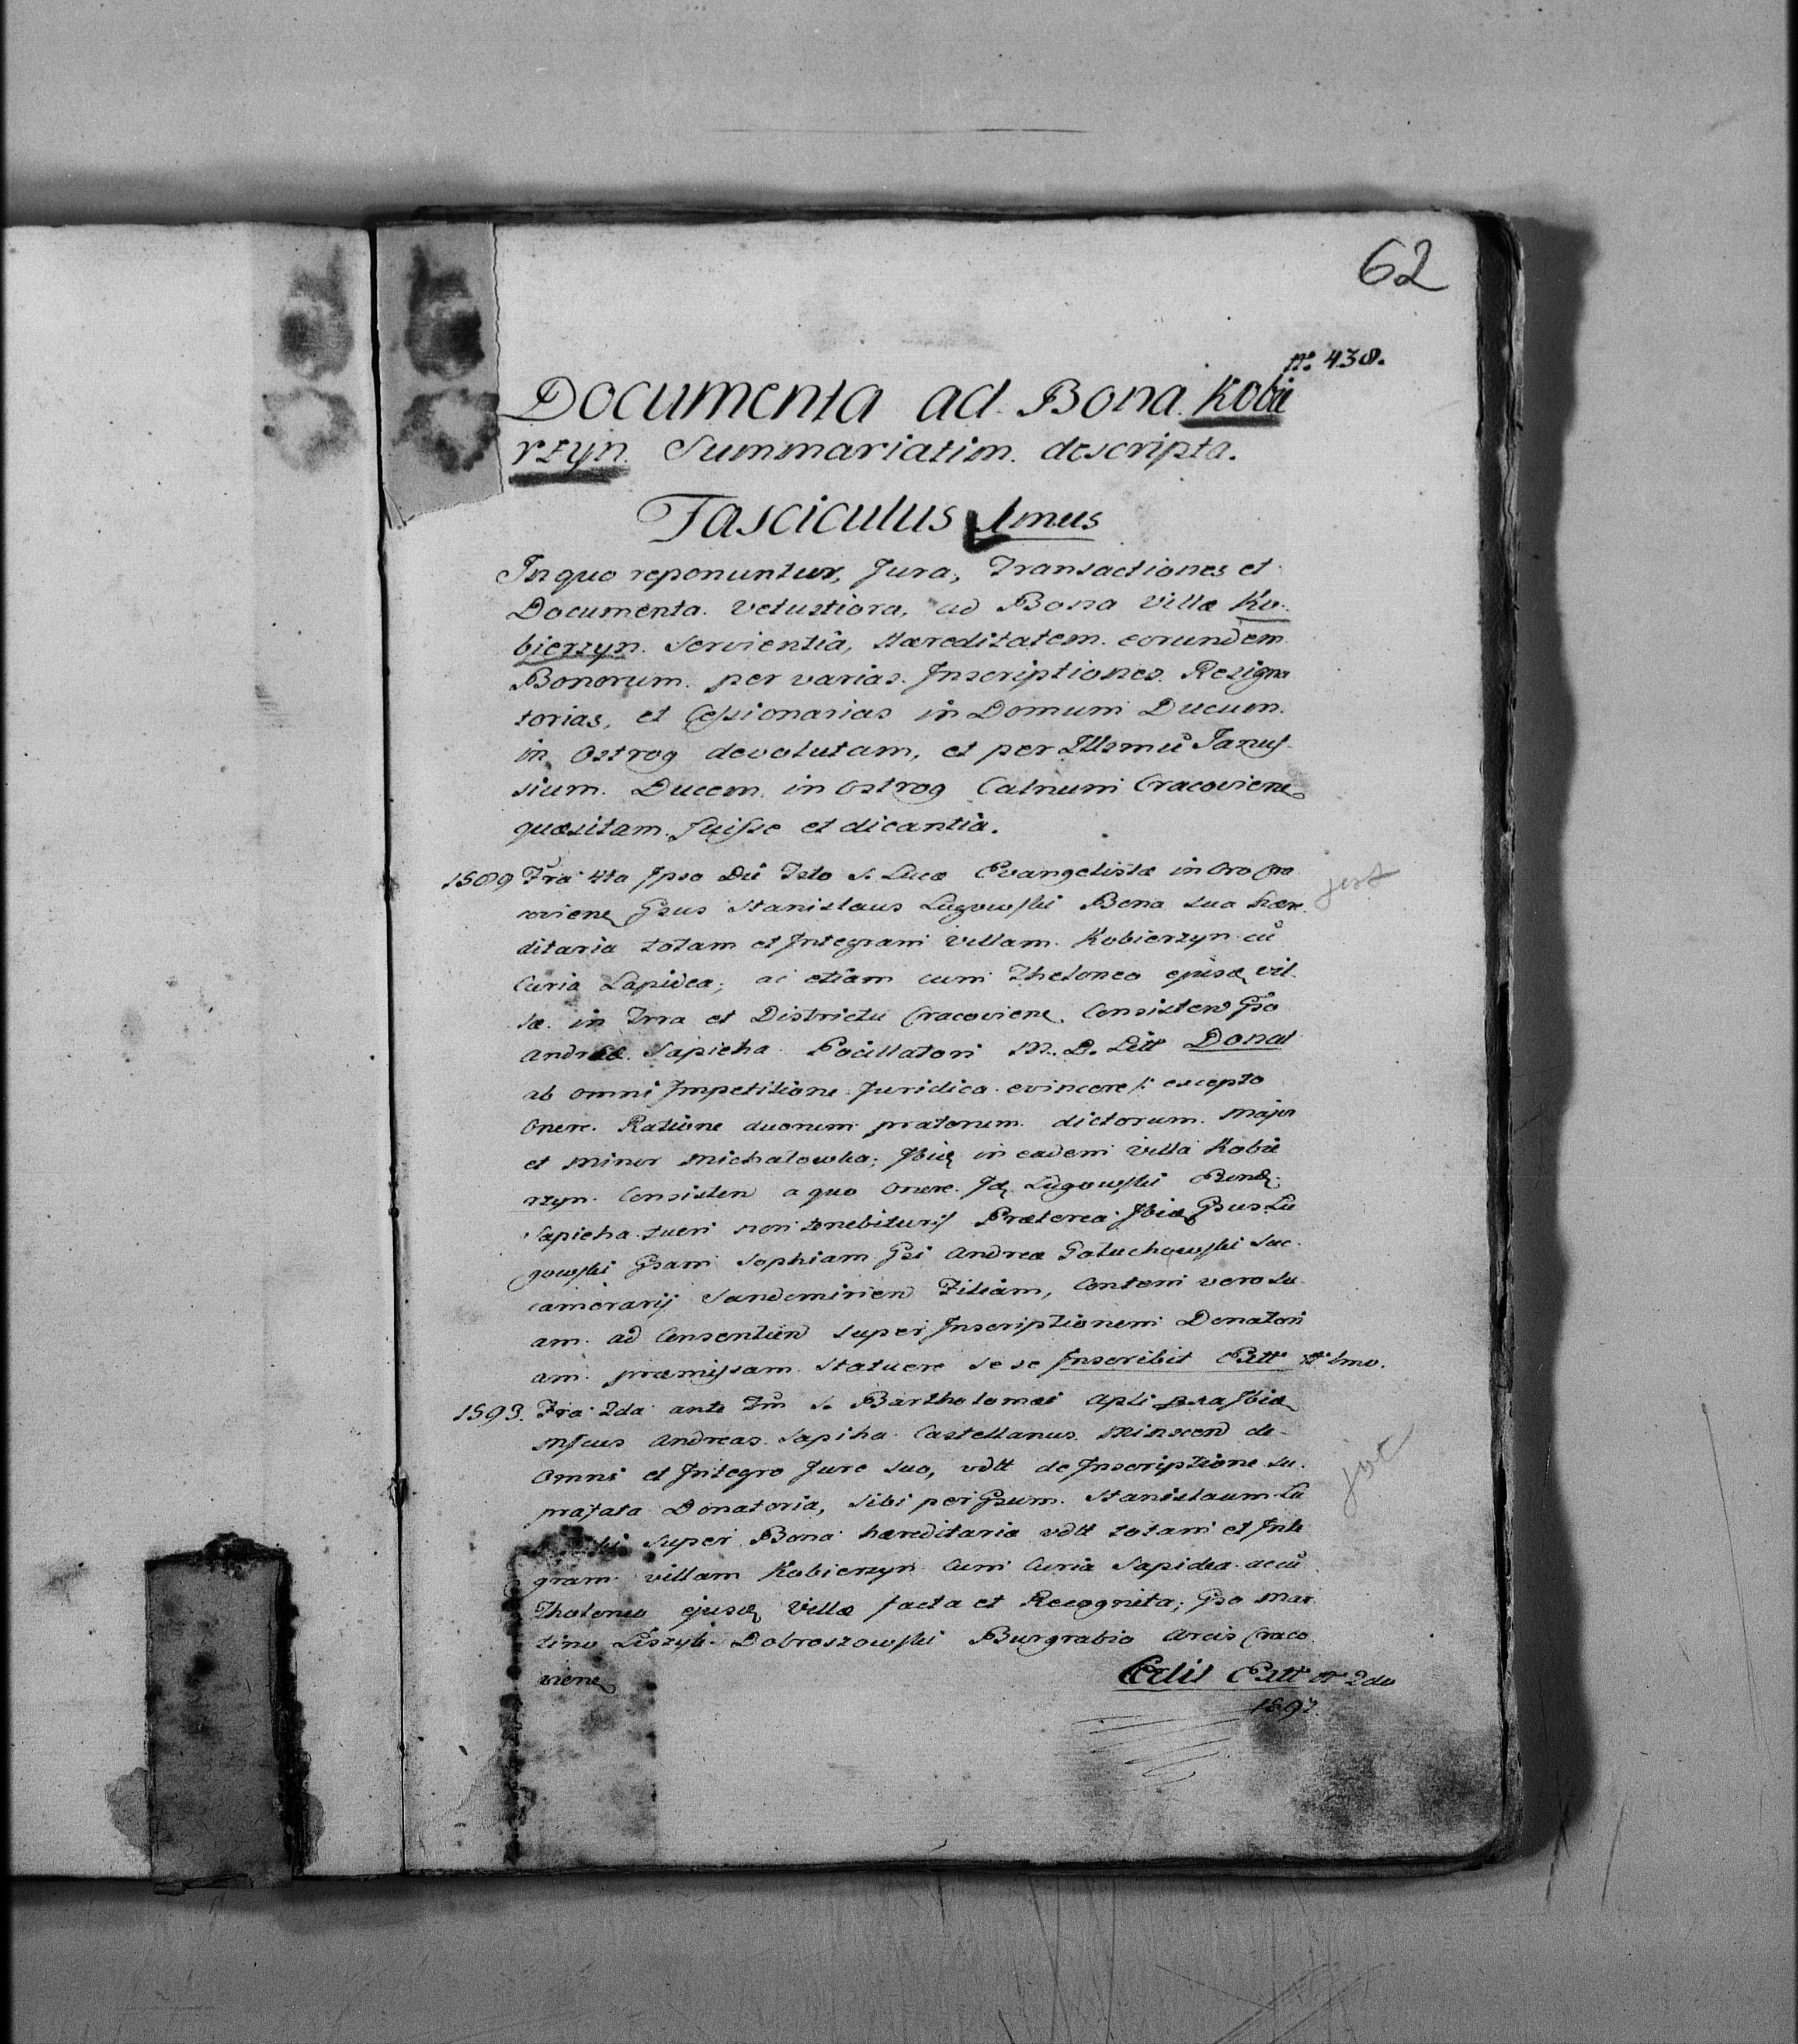 62
No. 438.
Documenta ad Bona Kobie
rzyn Summariatim descripta.
Fasciculus 1mus
In quo reponuntur, Jura, Transactiones et
Documenta vetustiora, ad Bona Villæ Ko-
bierzyn Servientia, Hæreditatem eorundem
Bonorum per varias Inscriptiones Resigna
torias, et Cessionarias in Domum Ducum
in Ostrog devolutam, et per Illsmu Janus-
sium Ducem in Ostrog Catnum Cracoviens
quæsitam fuisse et dicantia.
1589 Fria 4ta Ipso Die Isto S. Lucæ Evangelistæ in Cro Cra
coviens Gsus Stanislaus Lugowski Bona sua hære
ditaria totam et Integram villam Kobierzyn cu
Curia Lapidea, ac etiam cum Theloneo ejusd vil
læ in Trra et Districtu Cracoviens Consisten Gso
Andreæ Sapieha Pocillatori M. D. Litt Donat
ab omni Impetitione Juridica evincere /: excepto
Onere Ratione duorum pratorum dictorum Major
et Minor Michalowka, Ibid in eadem villa Kobie
rzyn Consisten a quo Onere Id Lugowski
Sapieha tueri non tenebitur :/ Præterea Ibid Gsus Lu
gowski Gsam Sophiam Gsi Andreæ Suc
camerarij Sandomirien Filiam, Contem vero su
am ad Consentien super Inscriptionem Donatori
am præmissam statuere se se Inscribit Extt No 1mo.
1593. Fria 2da ante Fm S. Bartholomæi Apli Ibid
Mfcus Andreas Sapiha Castellanus Minscen de
Omni et Integro Jure suo, vdtt de Inscriptione su
prafata Donatoria, sibi per Gsum Stanislaum Lu
super Bona hæreditaria vdtt totam et Inte
gram villam Kobierzyn Cum Curia Lapidea ac cu
Theloneo ejusd Villæ facta et Recognita, Gso Mar
tino Dobroszowski Burgrabio Arcis Craco
viens Cedit Extt No 2do
jest
jest